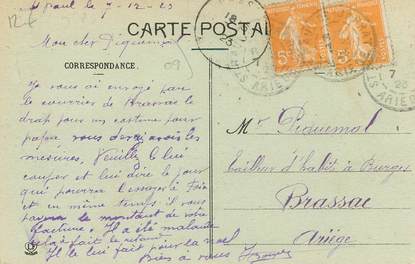 12€
St paul le 7-12-23
CARTE POSTALE
Mon cher Piquemal
CORRESPONDANCE.
09
Je vous ai envoyé par
le courrier de Brassac le
drap pour un costume pour
papa vous devez avoir les
mesures, Veuillez le lui
couper et lui dire le jour
qui pourra l'essayer à Foix
et en même temps il vous
le montant de votre
facture. Il a été malade
cela fait le retard
Il le lui fait pour la noel
Bien à vous
Mr Piquemal
tailleur d'habits à Burges
Brassac
Ariège